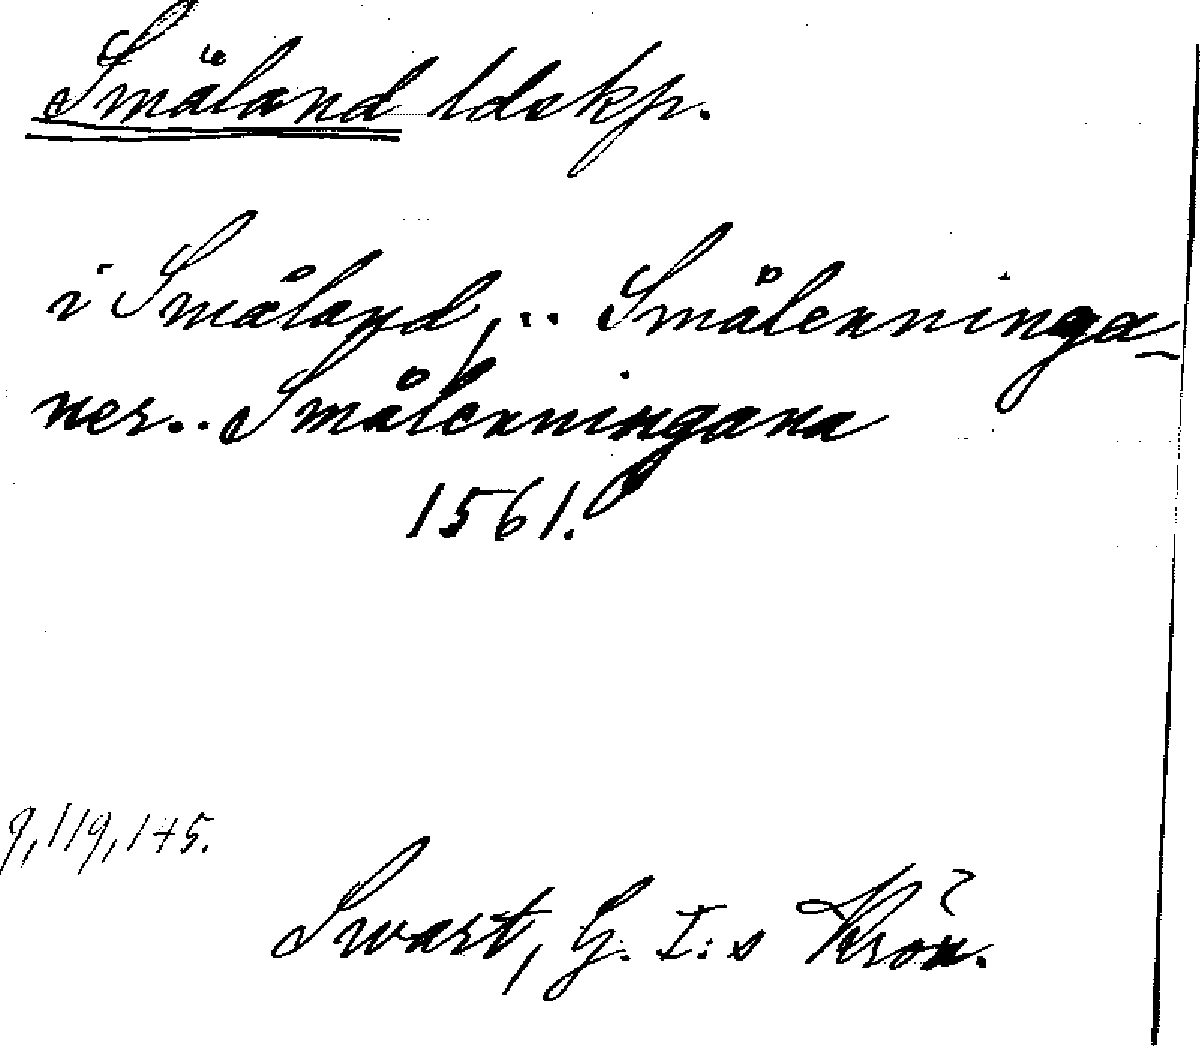 Småland ldskp.
i Småland, .. Smålenninga-
ner.. Smålenningana
1561.
9, 119, 145.
Swart, G. I:s Krön.